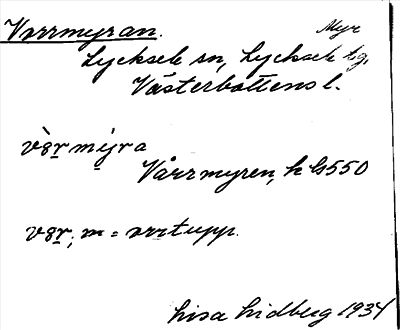 Vorrmyran. Myr
Lycksele sn, Lycksele tg.
Västerbottens l.
vòr̲ mýra
Vårrmyren, h Gs 550
vor̲; m = orrtupp.
Lisa Lidberg 1934